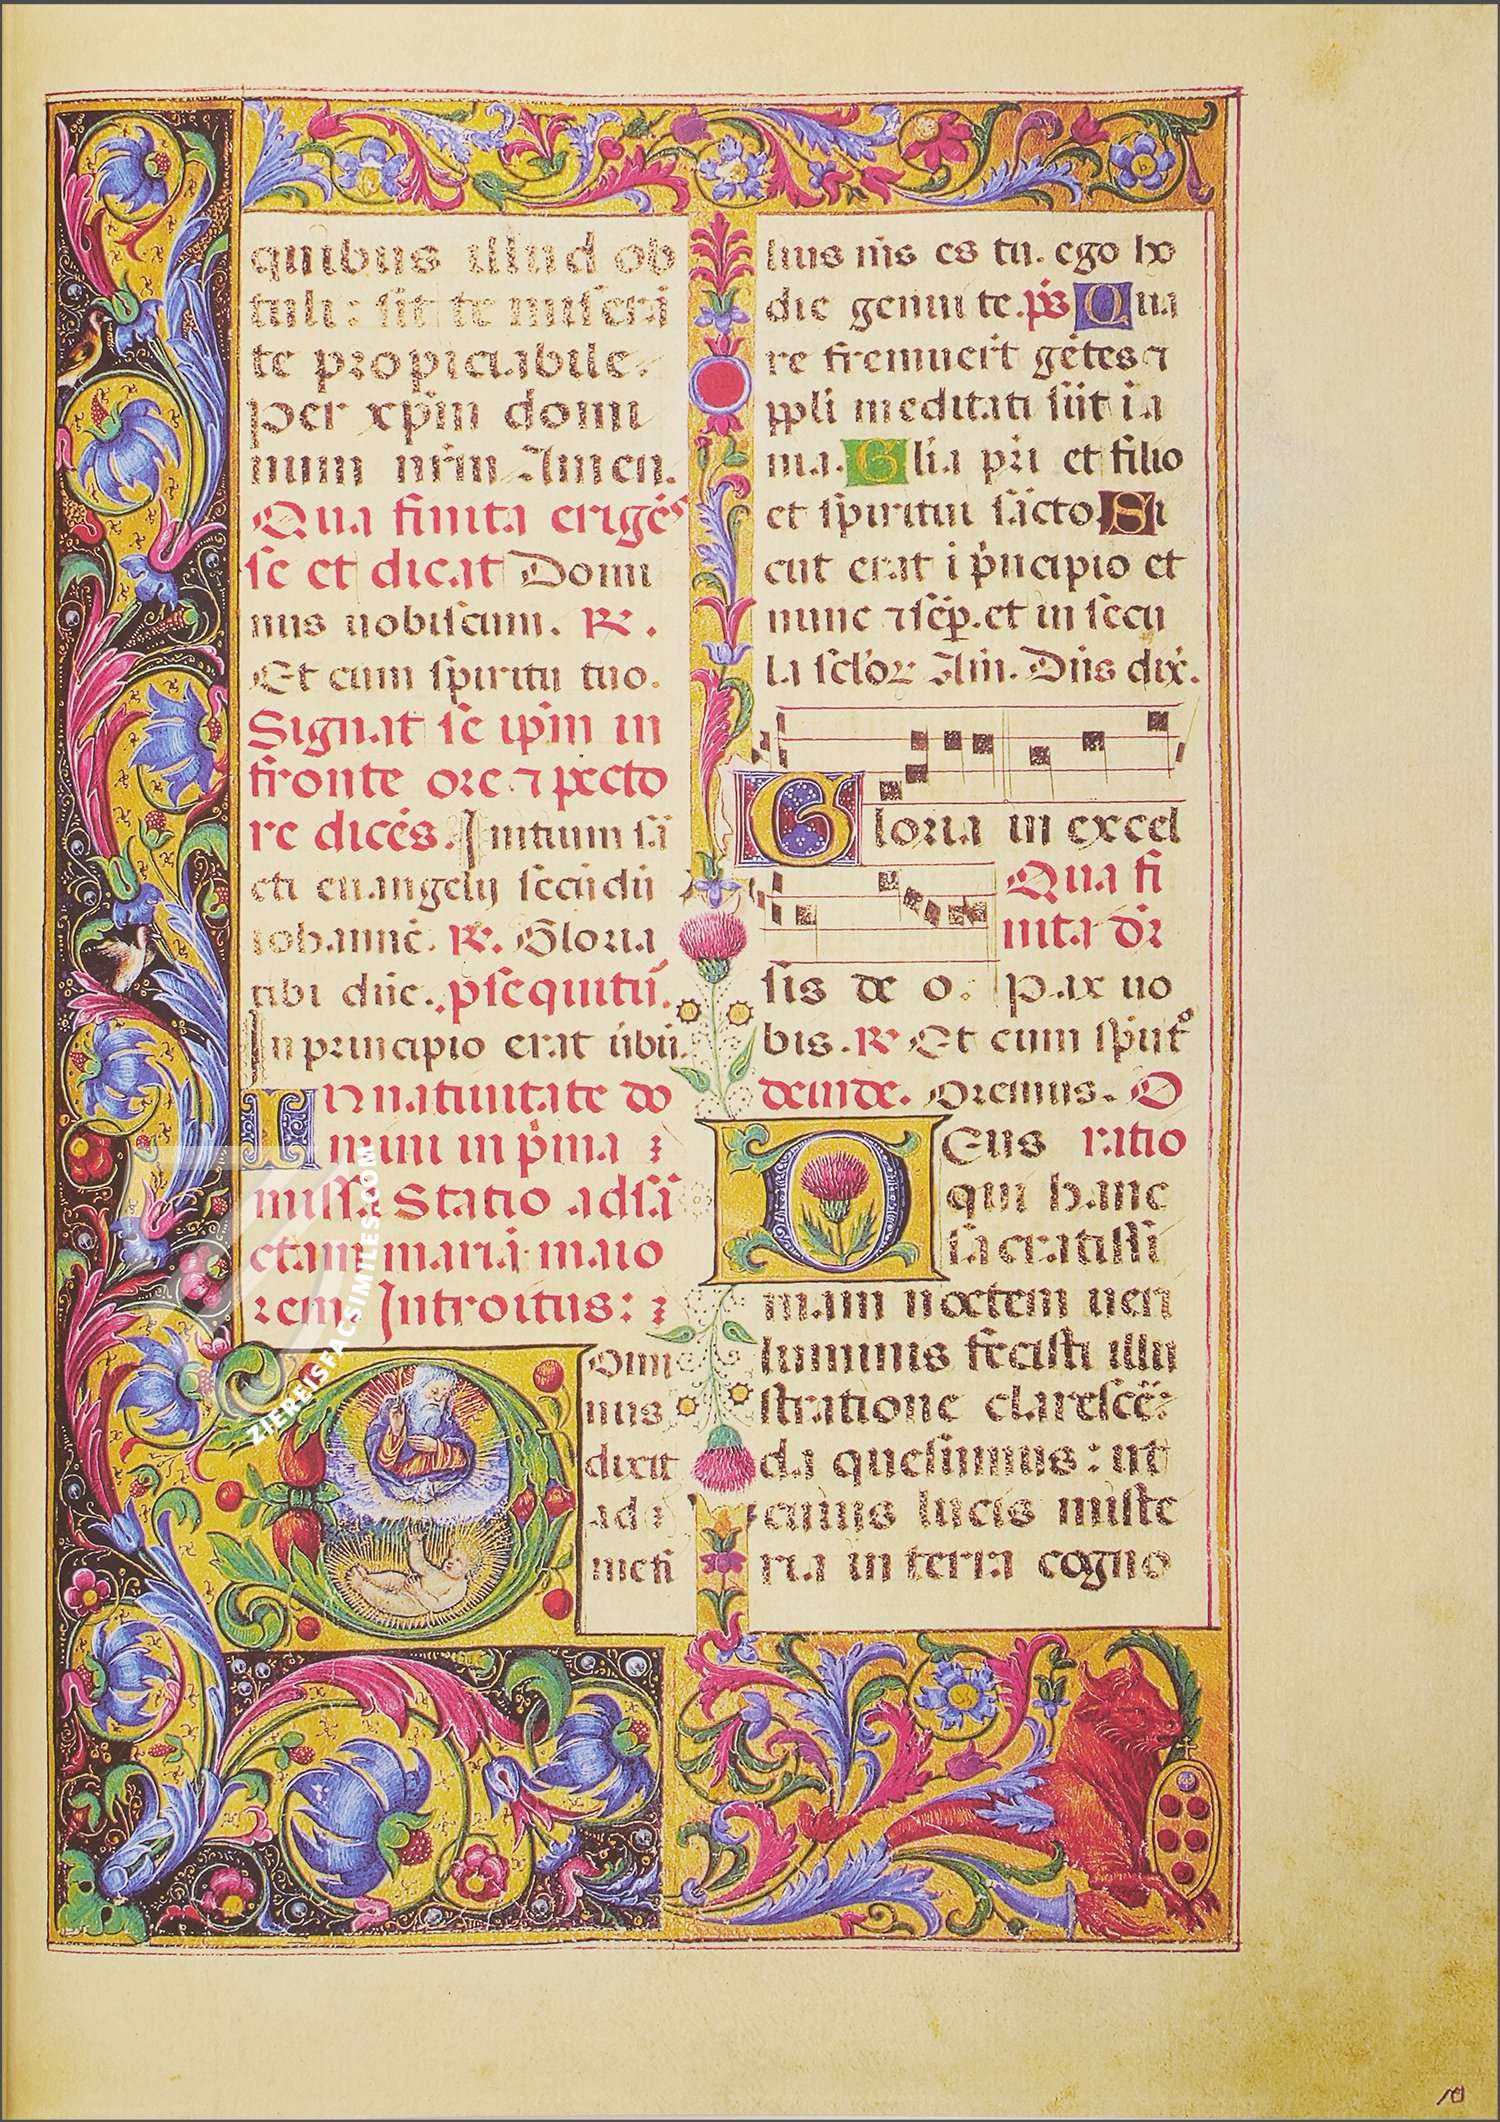 quibus illud ob
tuli: sit te misera
te propiciabile.
per xp̄m domi
num nr̄m Amen.
Qua finita erigēs
se et dicat Domi
nus uobiscum. R.
Et cum spiritu tuo.
Signat se ip̄m in
fronte ore ⁊ pecto
re dicēs. Initium sā
cti euangelij secūdū
iohannē. R. Gloria
tibi dn̄e. p̄sequitū.
In principio erat ūbū.
In natiuitate do
mini in p̄ma
missa Statio ad sā
ctam maria maio
rem Introitus:
Domi
nus
dixit
ad
me fi
lius m̄s es tu. ego ho
die genui te. p̄s Qua
re fremuerūt gētes ⁊
ppli meditati sūt ia
nia. Glīa pr̄i et filio
et spiritui sācto Si
cut erat ī p̄ncipio et
nunc ⁊ sēp. et in secu
la sclōꝝ Am. Dn̄s dix.
Gloria in excel
Qua fi
nita dr̄
sis deo. Pax uo
bis. R Et cum spūt
deinde. Oremus. O
DEus ratio
qui hanc
sacratissi
mam noctem ueri
luminis fecisti illu
stratione clarescē
da quesumus: ut
cuius lucis miste
ria in terra cogno
ZIEREISFACSIMILES.COM